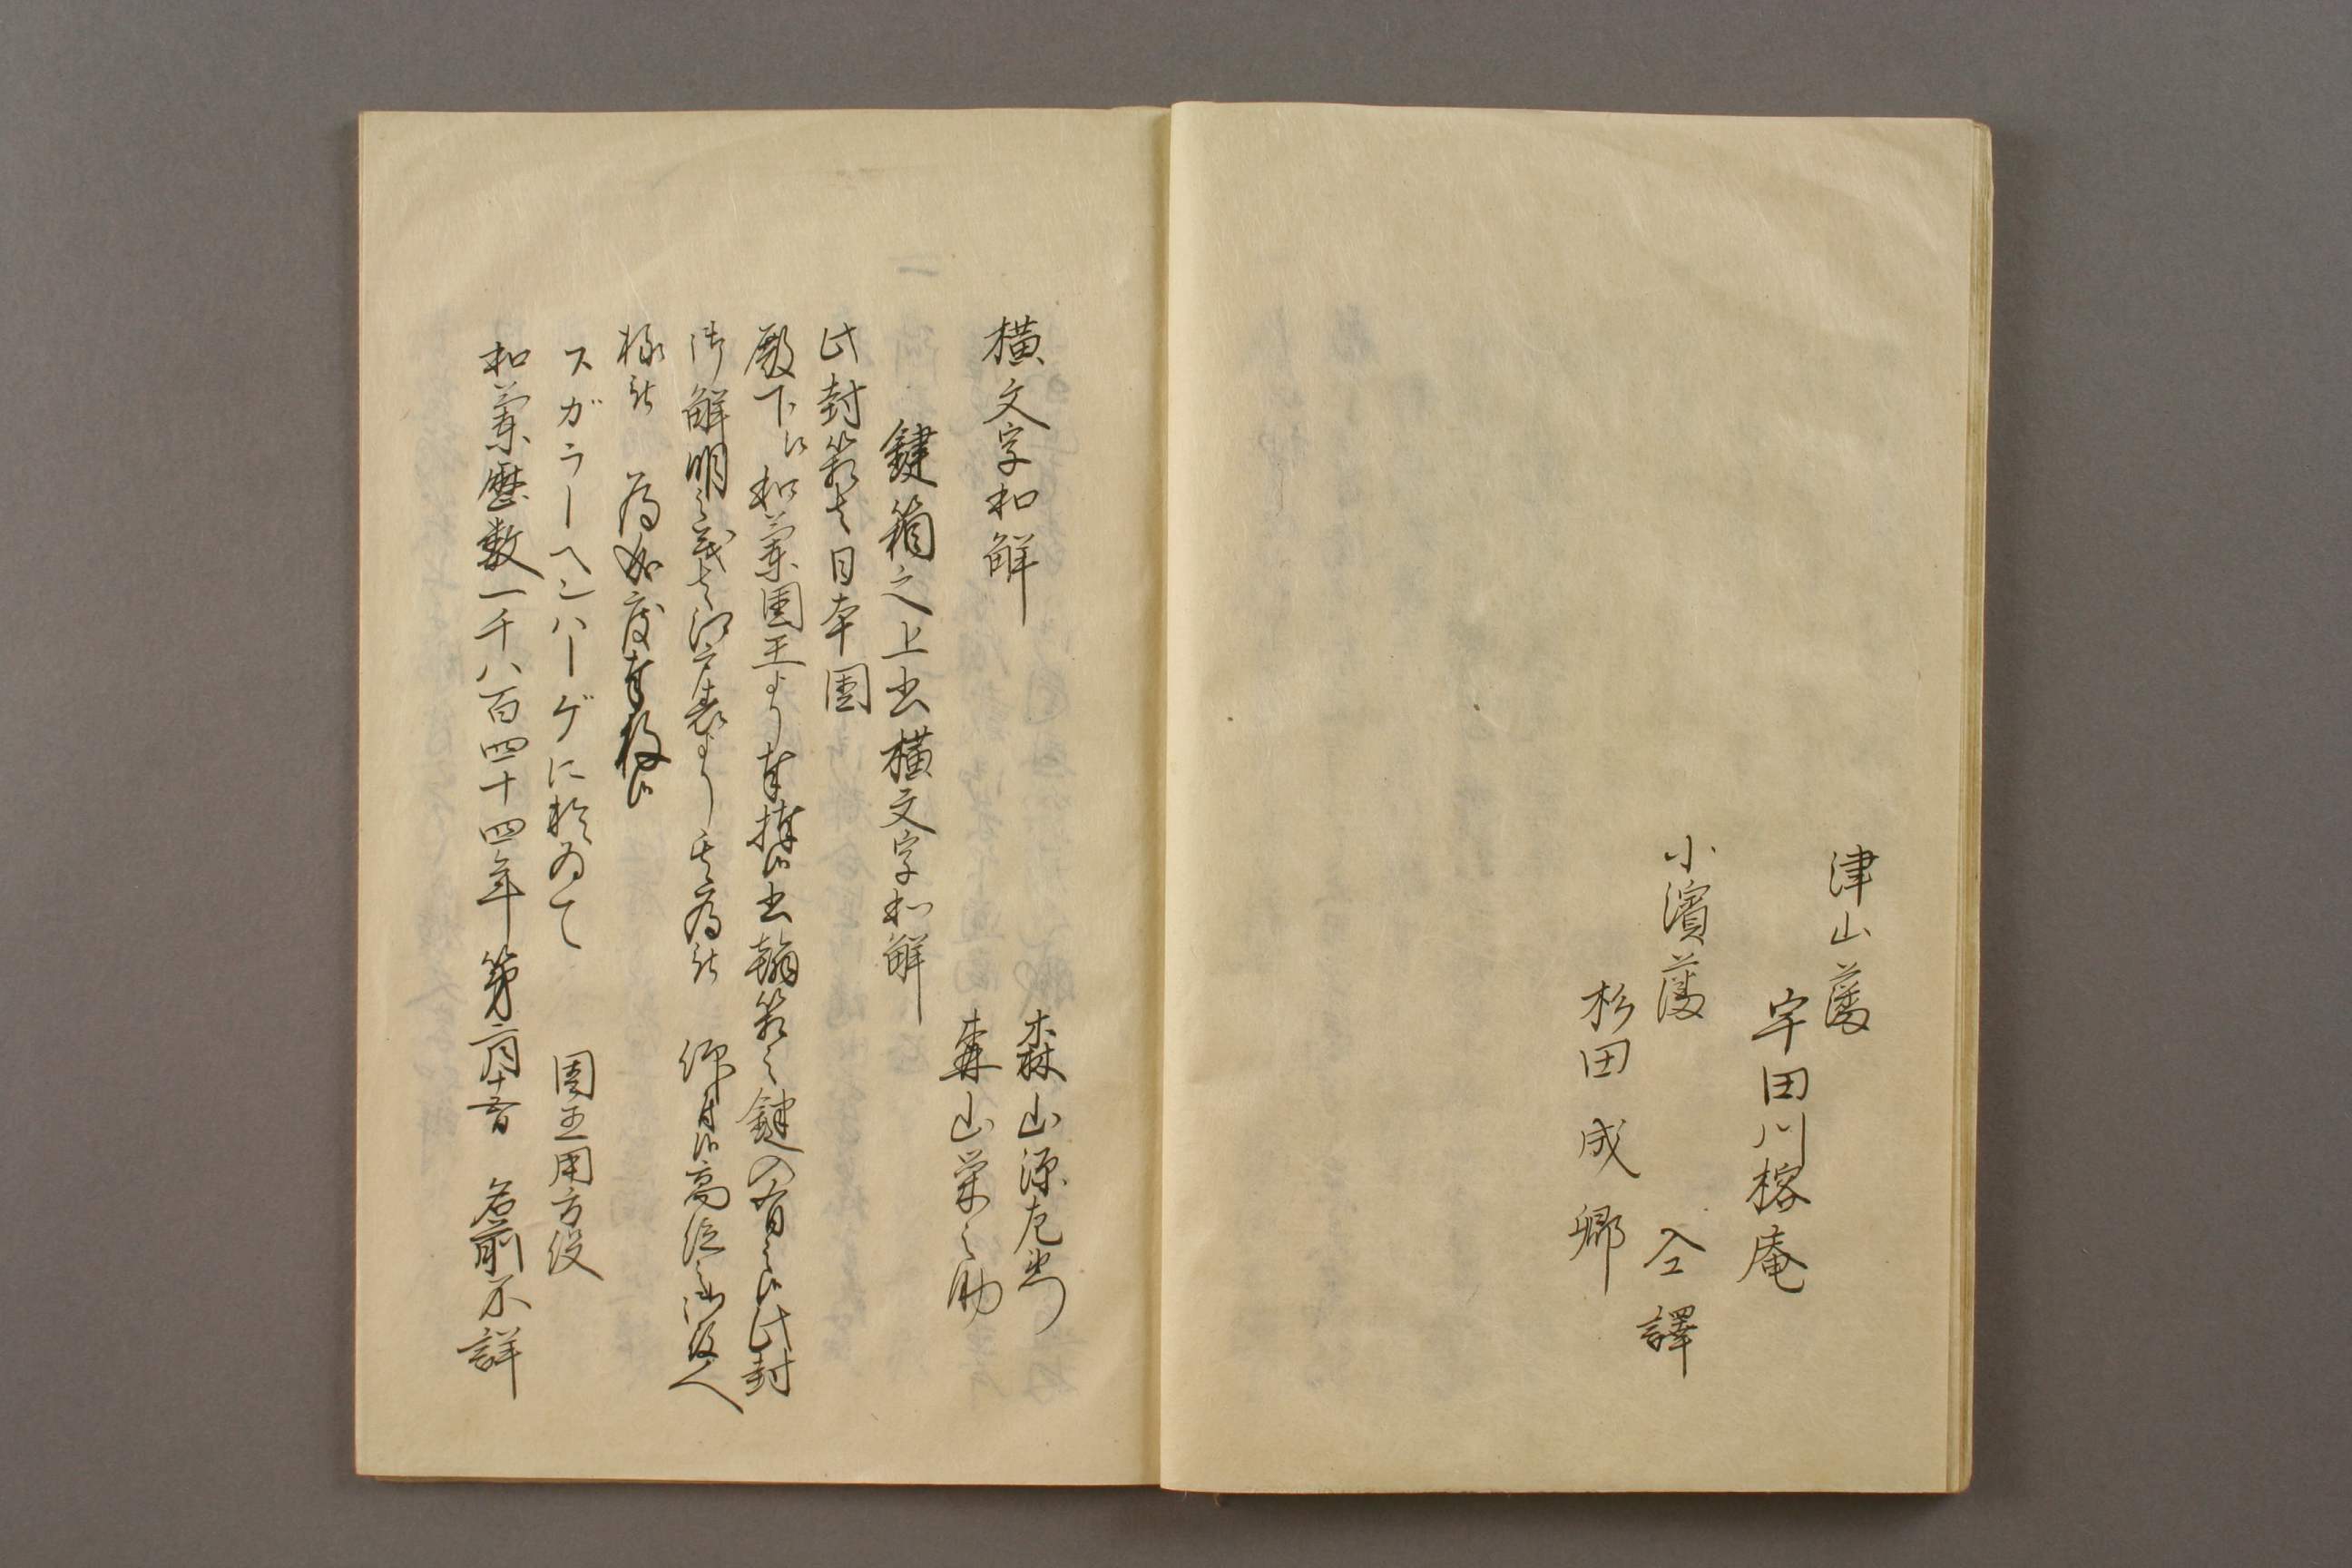 津山藩
宇田川榕庵
小濱藩
仝譯
杉田成卿
横文字和解
森山源左衛門
森山栄之助
鍵箱之上書横文字和解
此封箱者日本国
殿下江和蘭国王より奉捧候書翰箱之鍵入有之候此封
御解明之義者江戸表より其為被 仰付候高位之御役人
様被 為如度奉存候
スガラーヘンハーゲに於ゐて
国王用方役
和蘭暦数一千八百四十四年第二月十五日 名前不詳